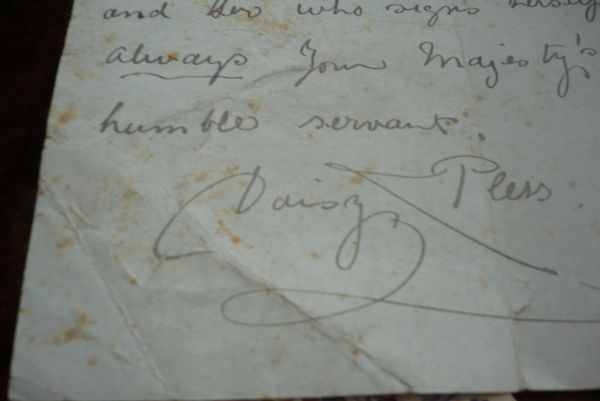 and two who signs herself
always Your Majesty's
humble servant.
Daisy Pless.